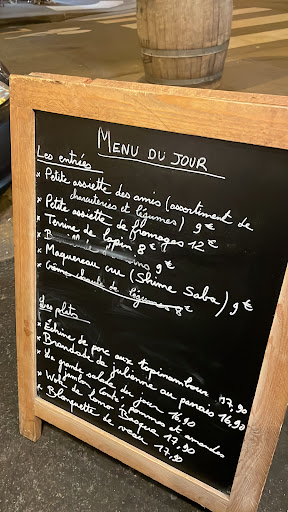 MENU DU JOUR
Les entrées
* Petite assiette des amis (assortiment de
charcuteries et légumes) 9€
* Petite assiette de fromages 12€
* Terrine de lapin 8€
* 9€
* Maquereau cru (Shime Saba) 9€
* Crème chaude de légumes 8€
Les plats
* Échine de porc aux topinambours 17,90
* Brandade de julienne au panais 16,90
* La grande salade du jour 16,90
jambon, pommes et amandes
* Wok de lomo Basque 17,90
* Blanquette de veau 17,90